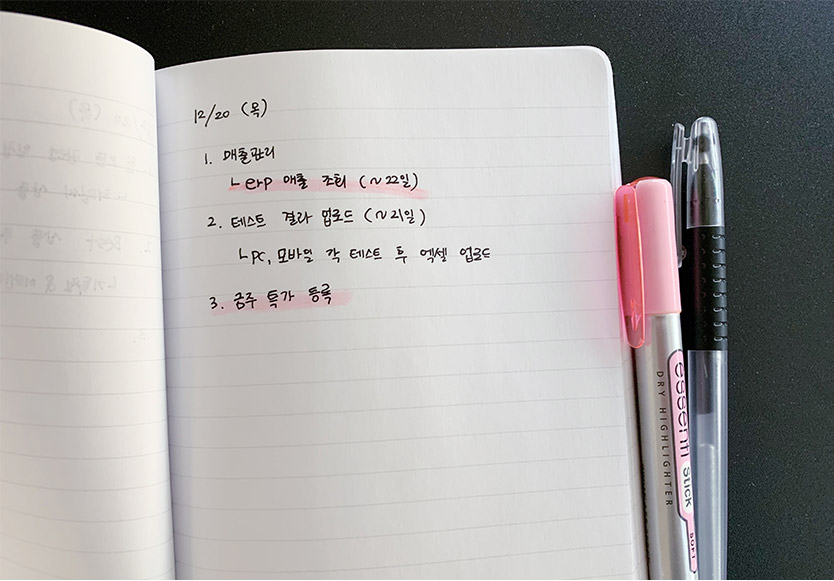 12/20 (목)
1. 매출관리
ㄴ erp 매출 조회 (~22일)
2. 테스트 결과 업로드 (~21일)
ㄴ PC, 모바일 각 테스트 후 엑셀 업로드
3. 금주 특가 등록
essenti
stick
soft
DRY HIGHLIGHTER